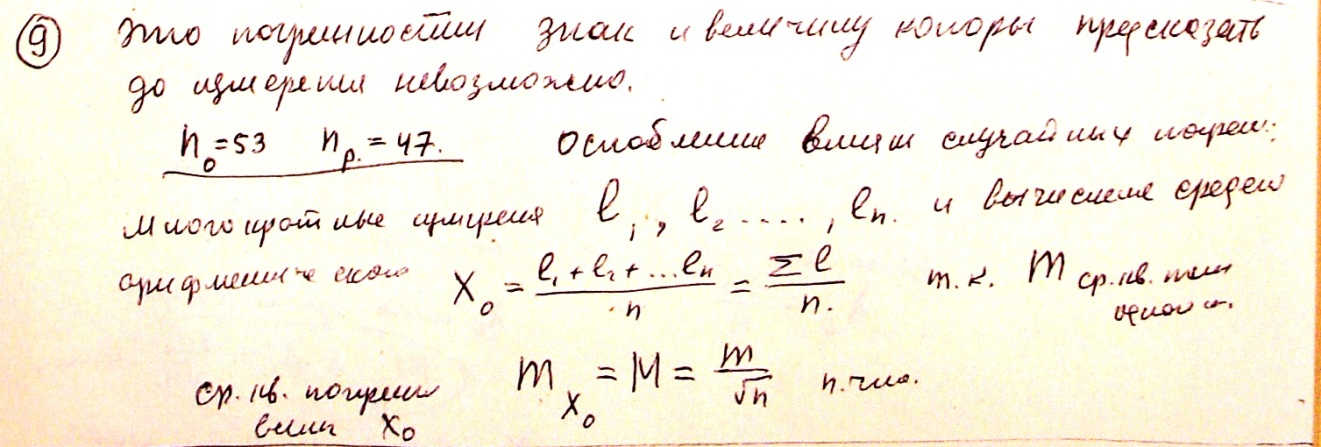 9 Это погрешности знак и величину которы предсказать
до измерения невозможно.
n₀=53 nр.=47. Ослабление влиян случайных погреш:
Многократные измерения l₁, l₂ ...., lₙ. и вычисление средего
арифметического X₀ = (l₁+l₂+...lₙ)/n = Σl/n. т.к. m ср.кв.
ср.кв. погрешн m_X₀ = M = m/√n n.чис.
велич X₀